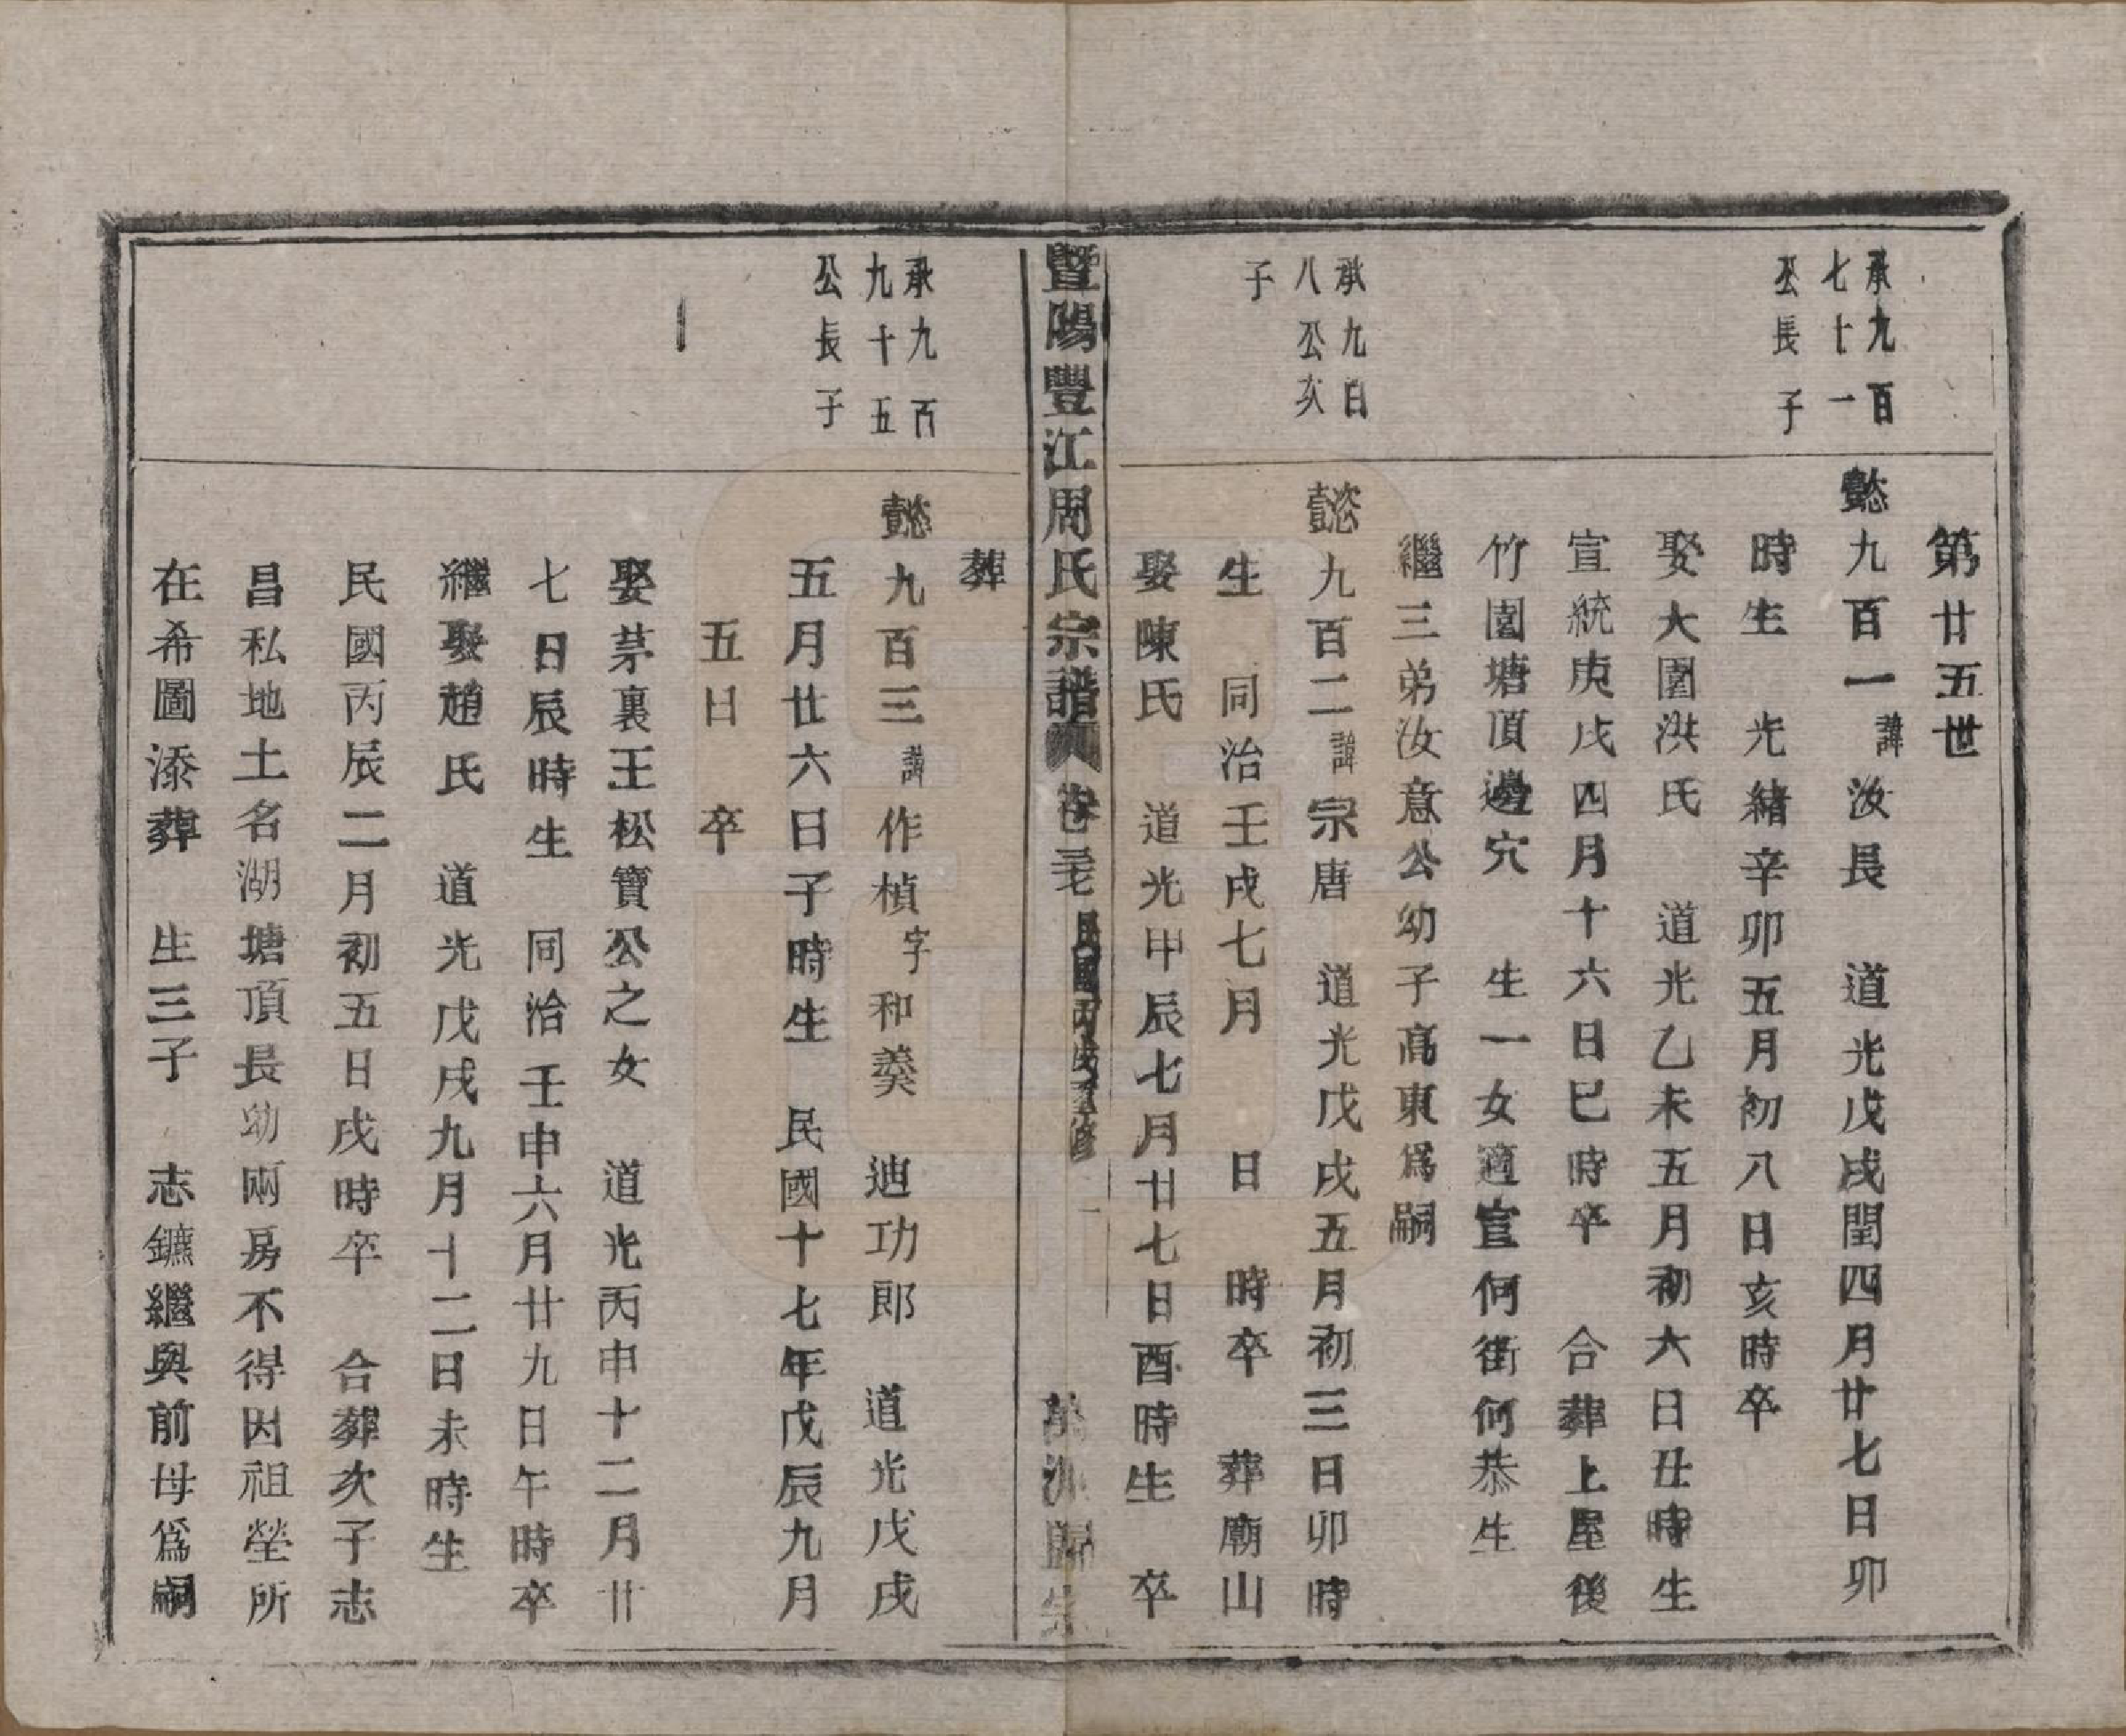 第廿五世
承九百
七十一
公長子
懿九百一諱汝長　道光戊戌閏四月廿七日卯
時生　光緒辛卯五月初八日亥時卒
娶大園洪氏　道光乙未五月初六日丑時生
宣統庚戌四月十六日巳時卒　合葬上屋後
竹園塘頂邊穴　生一女適官何街何恭生
繼三弟汝意公幼子高東爲嗣
承九百
八公次
子
懿九百二諱宗唐　道光戊戌五月初三日卯時
生　同治壬戌七月　日　時卒　葬廟山
娶陳氏　道光甲辰七月廿七日酉時生　卒
暨陽豐江周氏宗譜　卷三七　民國丙戌重修
葬
承九百
九十五
公長子
懿九百三諱作楨字和羹　迪功郎　道光戊戌
五月廿六日子時生　民國十七年戊辰九月
五日　卒
娶茅裏王松寶公之女　道光丙申十二月廿
七日辰時生　同治壬申六月廿九日午時卒
繼娶趙氏　道光戊戌九月十二日未時生
民國丙辰二月初五日戌時卒　合葬次子志
昌私地土名湖塘頂長幼兩房不得因祖塋所
在希圖添葬　生三子　志鑣繼與前母爲嗣